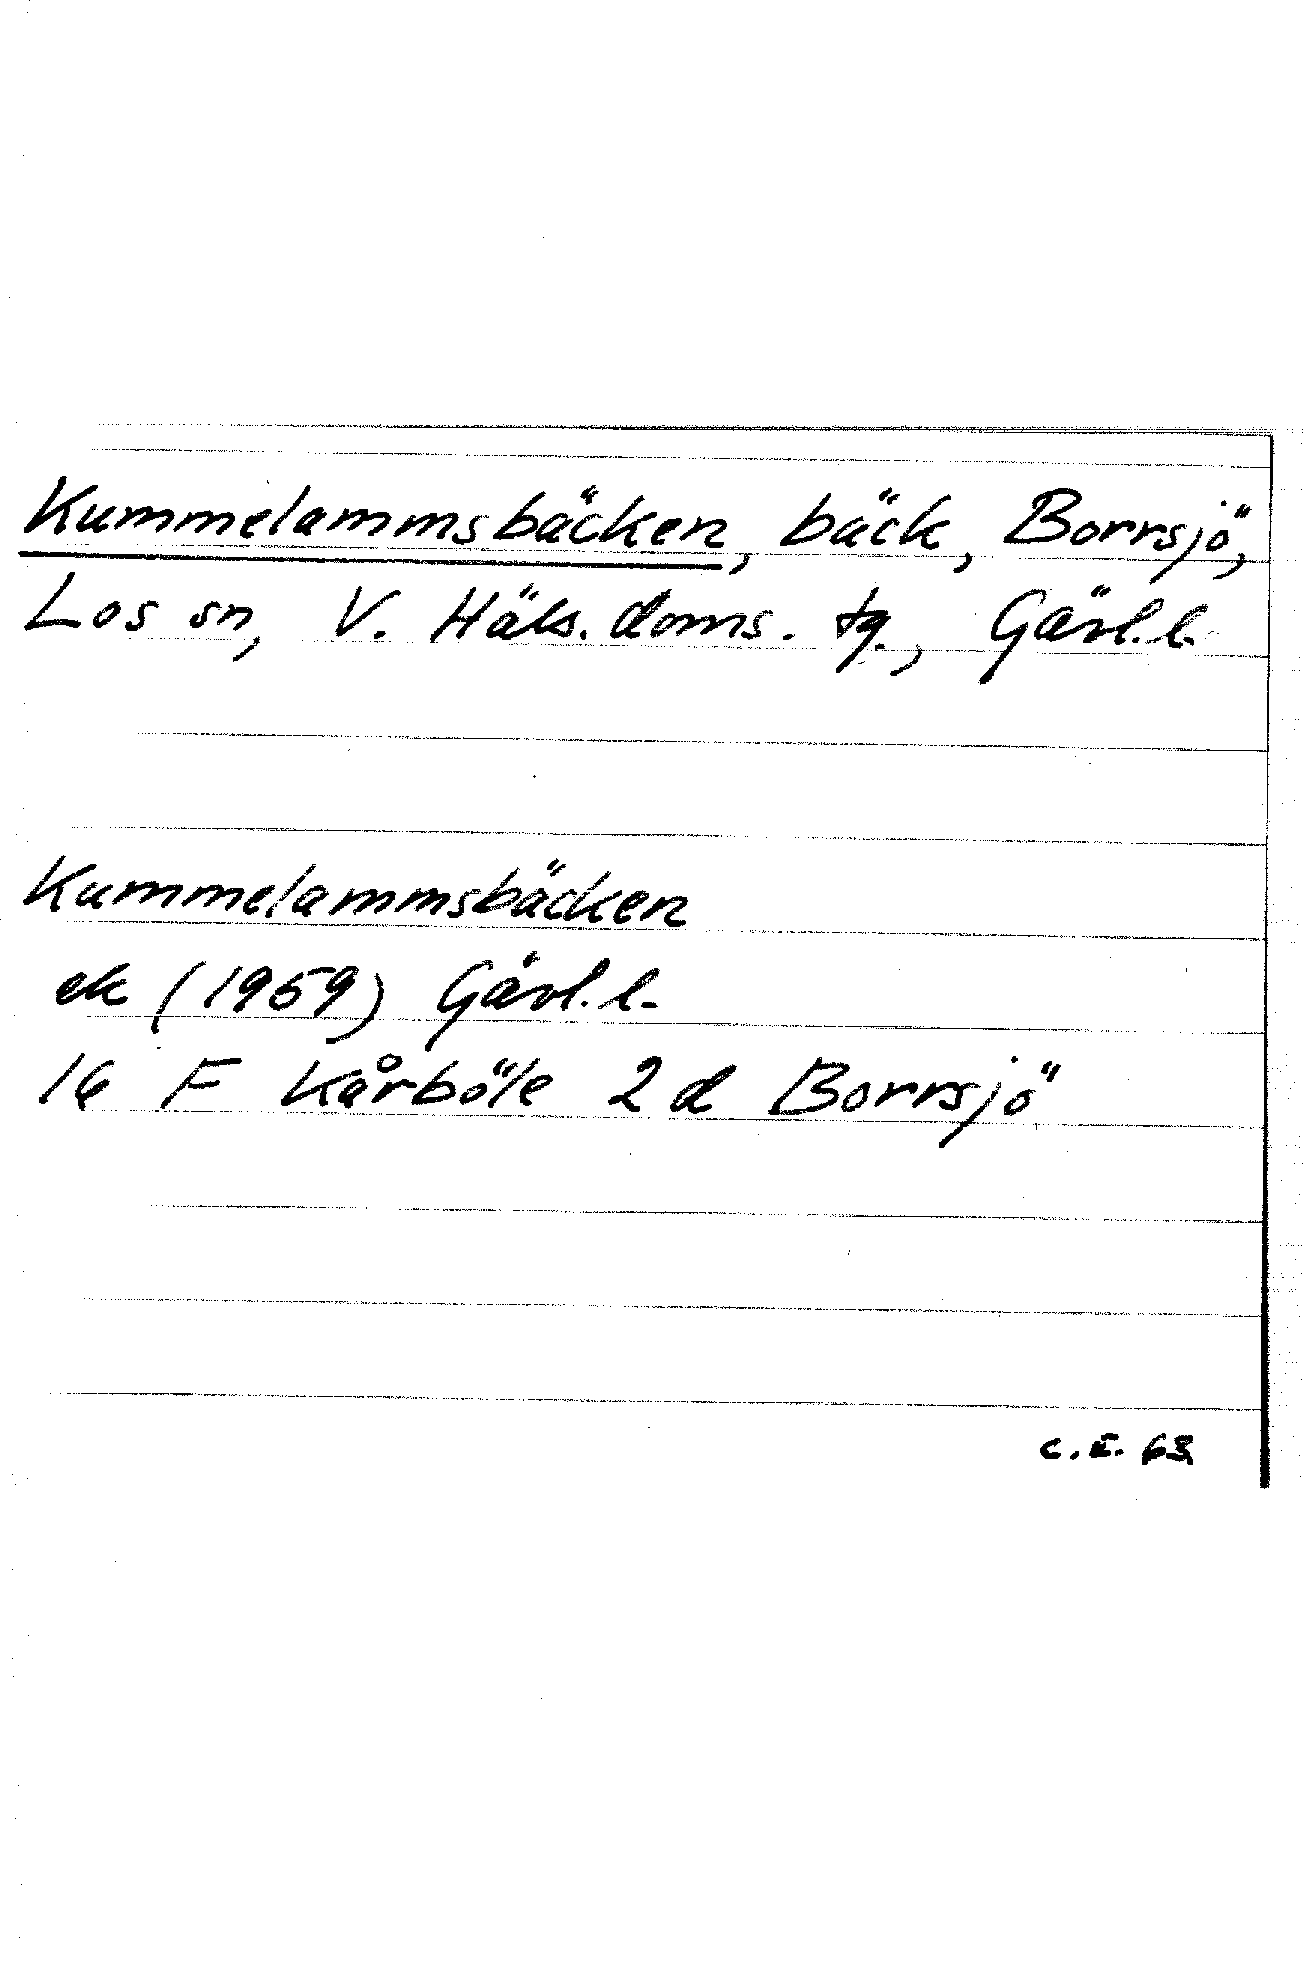 Kummelammsbäcken, bäck, Borrsjö,
Los sn, V. Häls. doms. tg., Gävl.l.
Kummelammsbäcken
ek (1959) Gävl.l.
16 F Kårböle 2 d Borrsjö
C.E. 63